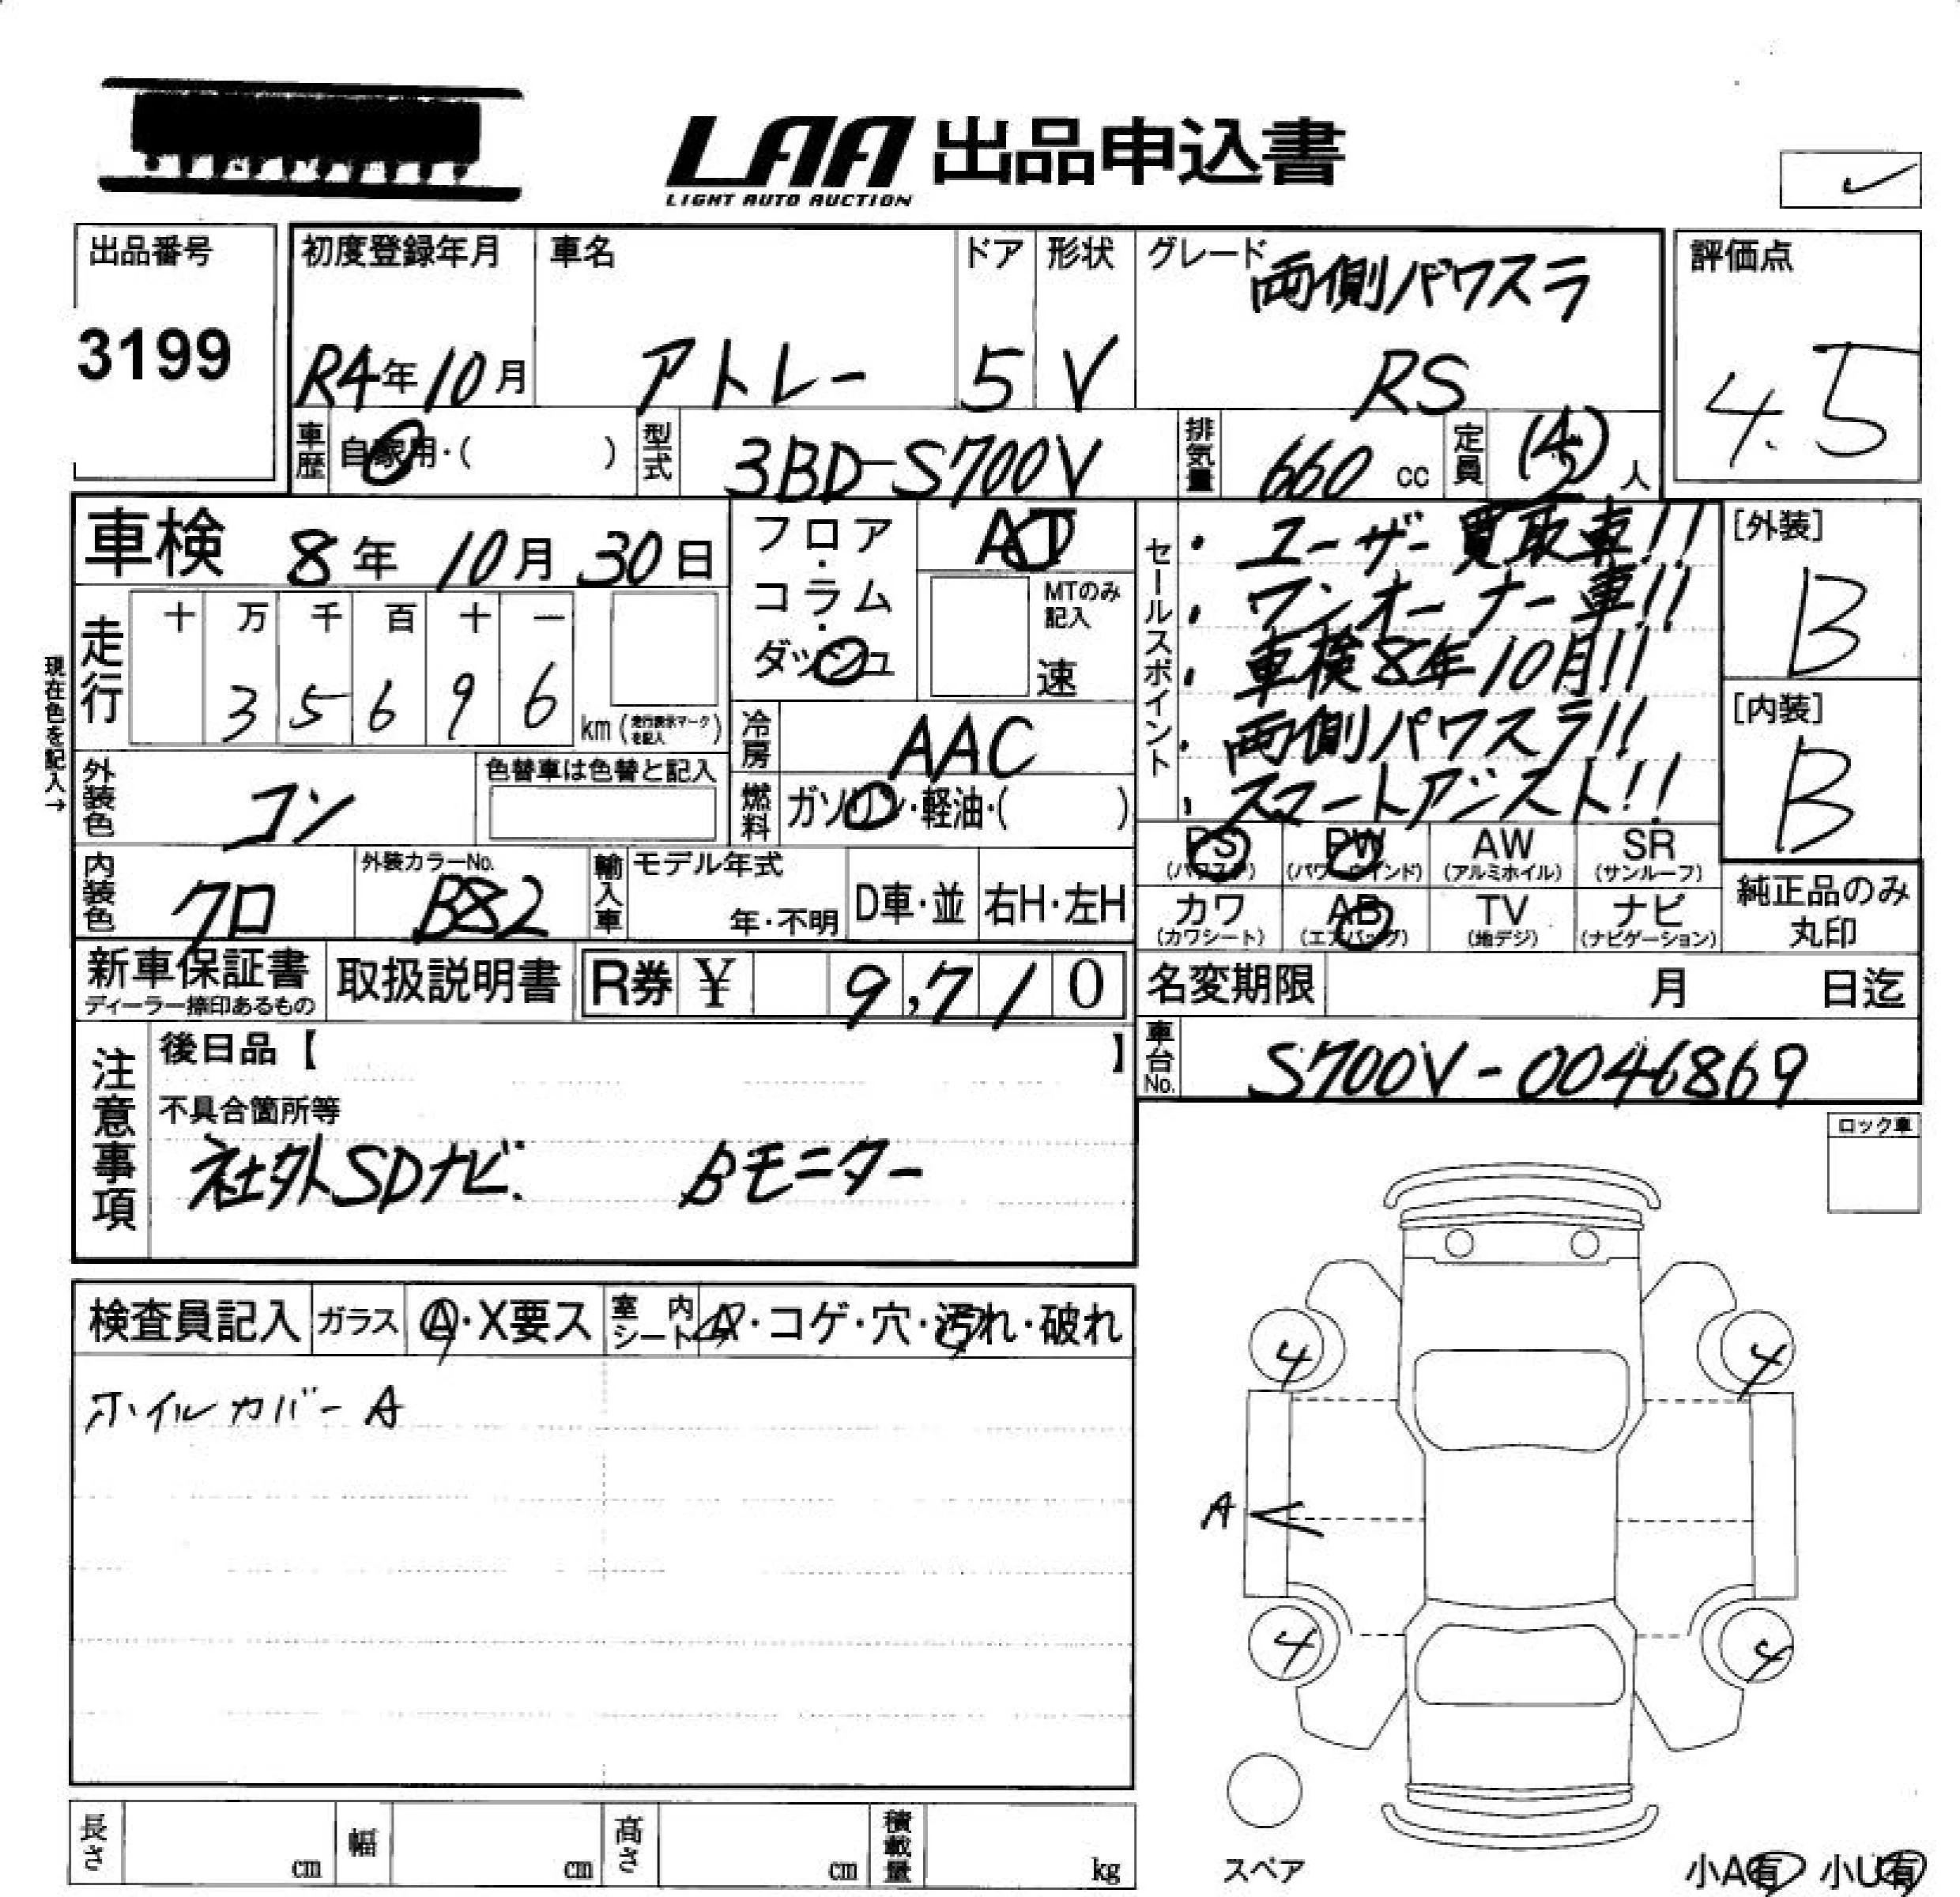 LAA 出品申込書
LIGHT AUTO AUCTION
出品番号
3199
初度登録年月
R4年10月
車名
アトレー
ドア
5
形状
V
グレード
両側パワスラ
RS
評価点
4.5
車歴
自家用・( )
型式
3BD-S700V
排気量
660 cc
定員
(4) 人
車検 8年 10月 30日
フロア・コラム・ダッシュ
AT
MTのみ記入
速
セールスポイント
・ユーザー買取車!!
・ワンオーナー車!!
・車検8年10月!!
・両側パワスラ!!
・スマートアシスト!!
[外装]
B
[内装]
B
現在色を記入→
走行
十 万 千 百 十 一
3 5 6 9 6
km (走行表示マークを記入)
冷房
AAC
外装色
コン
色替車は色替と記入
燃料
ガソリン・軽油・( )
内装色
クロ
外装カラーNo.
B82
輸入車
モデル年式
年・不明
D車・並
右H・左H
PS (パワステ)
PW (パワーウインド)
AW (アルミホイル)
SR (サンルーフ)
カワ (カワシート)
AB (エアバッグ)
TV (地デジ)
ナビ (ナビゲーション)
純正品のみ
丸印
新車保証書
ディーラー捺印あるもの
取扱説明書
R券 ¥ 9,710
名変期限 月 日迄
車台No.
S700V-0046869
注意事項
後日品【 】
不具合箇所等
社外SDナビ. Bモニター
ロック車
検査員記入
ガラス
A・X要ス
室内シート
A・コゲ・穴・汚れ・破れ
ホイルカバーA
4
4
A
4
4
スペア
長さ cm
幅 cm
高さ cm
積載量 kg
小A有 小U有